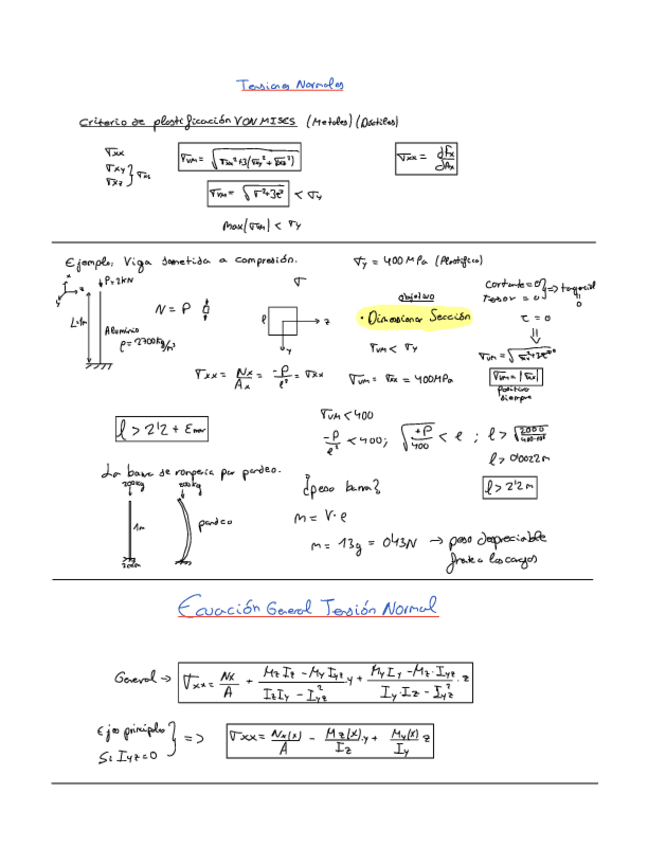 Tensiones Normales
Criterio de plastificación VON MISES (Metales) (Dúctiles)
σxx
σxy
σxz } 
σVM = √(σxx² + 3(σxy² + σxz²))
σxx = dFx/dAx
σVM = √(σ² + 3τ²) < σy
Max(σVM) < σy
Ejemplo: Viga sometida a compresión.
σy = 400 MPa (Plastifica)
x
z
y
P = 2kN
L=1m
Aluminio
ρ = 2700 kg/m³
N = P
σ
l
z
y
objetivo
· Dimensionar Sección
Cortante = 0
Torsor = 0 } => tangencial
0
τ = 0
σVM < σy
σxx = Nx/Ax = -P/l² = σxx
σVM = σxx = 400MPa
σVM = |σxx|
positivo
siempre
σVM < 400
l > 2'2 +
-P/l² < 400; √(+P/400) < l ; l > √(2000/400·10⁶)
l > 0'0022m
l > 2'2m
La barra se rompería por pandeo.
200kg
200kg
1m
pandeo
¿peso barra?
m = V·ρ
m = 13g = 0'13N → peso despreciable
frente a las cargas
Ecuación General Tensión Normal
General → σxx = Nx/A + (MzIz - MyIyz)/(IzIy - Iyz²) · y + (MyIy - Mz·Iyz)/(Iy·Iz - Iyz²) · z
Ejes principales
Si Iyz = 0 } => σxx = Nx(x)/A - Mz(x)/Iz · y + My(x)/Iy z